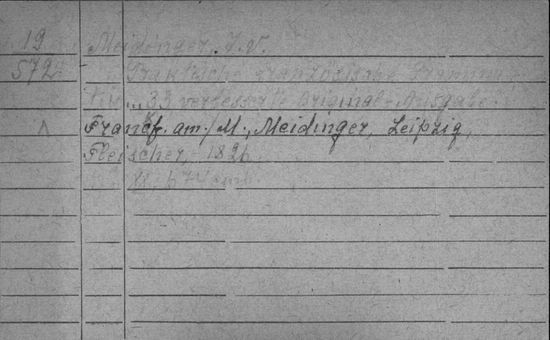 12 Meidinger, J. V.
572 Praktische französische Gramma
tik... 33 verbesserte Original-Ausgabe.
Francf. am./M., Meidinger, Leipzig,
Fleischer, 1826.